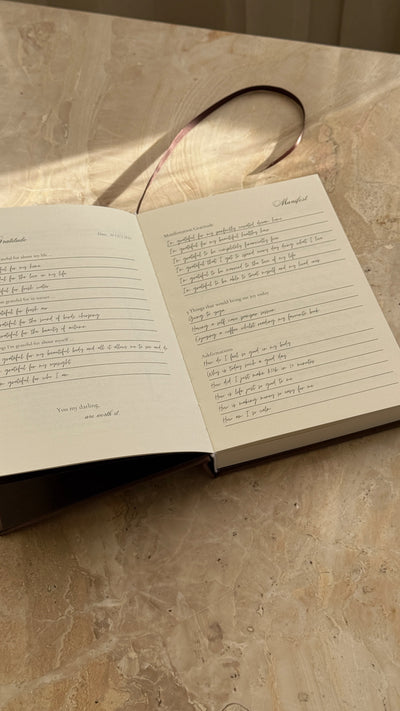 Gratitude
Date:
grateful for about my life ...
grateful for my home
grateful for the love in my life
grateful for fresh water
I'm grateful for in nature ...
grateful for fresh air
grateful for the sound of birds chirping
grateful for the beauty of autumn
things I'm grateful for about myself ...
grateful for my beautiful body and all it allows me to see and do
grateful for my eyesight
grateful for who I am
You my darling,
are worth it.
Manifest
Manifestation Gratitude
I'm grateful for my perfectly curated dream home
I'm grateful for my beautiful healthy hair
I'm grateful to be completely financially free
I'm grateful that I get to spend every day doing what I love
I'm grateful to be married to the love of my life
I'm grateful to be able to treat myself and my loved ones
3 Things that would bring me joy today
Going to yoga
Having a self care pamper session
Enjoying a coffee whilst reading my favourite book
Askfirmations
How do I feel so good in my body
Why is today such a good day
How did I just make $10k in 10 minutes
How is life just so good to me
How is making money so easy for me
How am I so calm